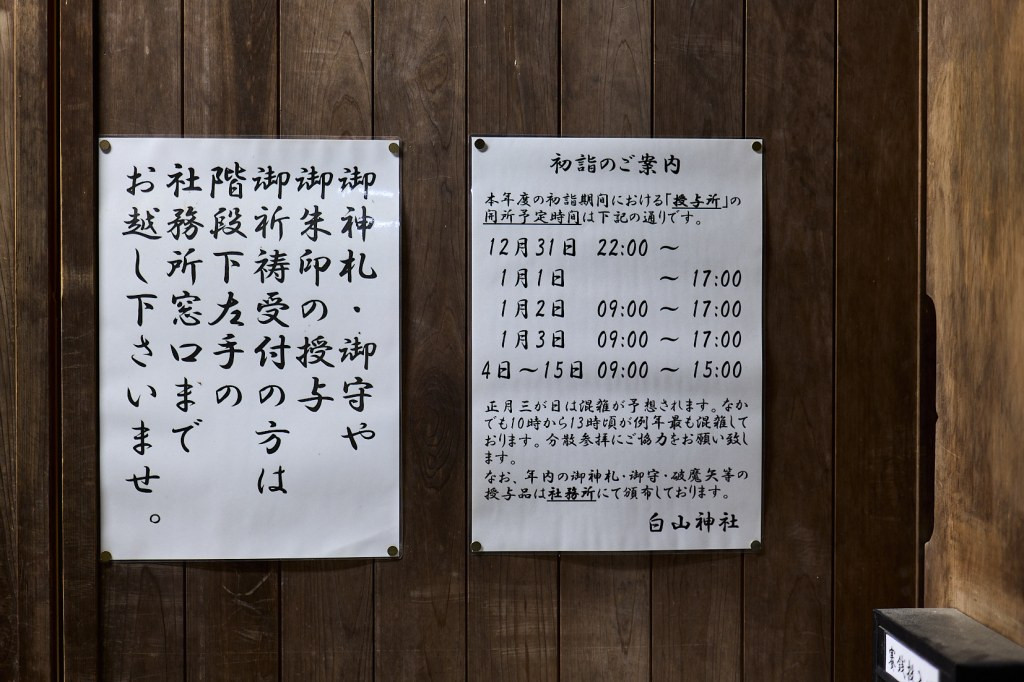 御神札・御守や
御朱印の授与
御祈祷受付の方は
階段下左手の
社務所窓口まで
お越し下さいませ。
初詣のご案内
本年度の初詣期間における「授与所」の
開所予定時間は下記の通りです。
12月31日 22:00 ～
1月1日 ～ 17:00
1月2日 09:00 ～ 17:00
1月3日 09:00 ～ 17:00
4日～15日 09:00 ～ 15:00
正月三が日は混雑が予想されます。なか
でも10時から13時頃が例年最も混雑して
おります。分散参拝にご協力をお願い致し
ます。
なお、年内の御神札・御守・破魔矢等の
授与品は社務所にて頒布しております。
白山神社
賽銭投